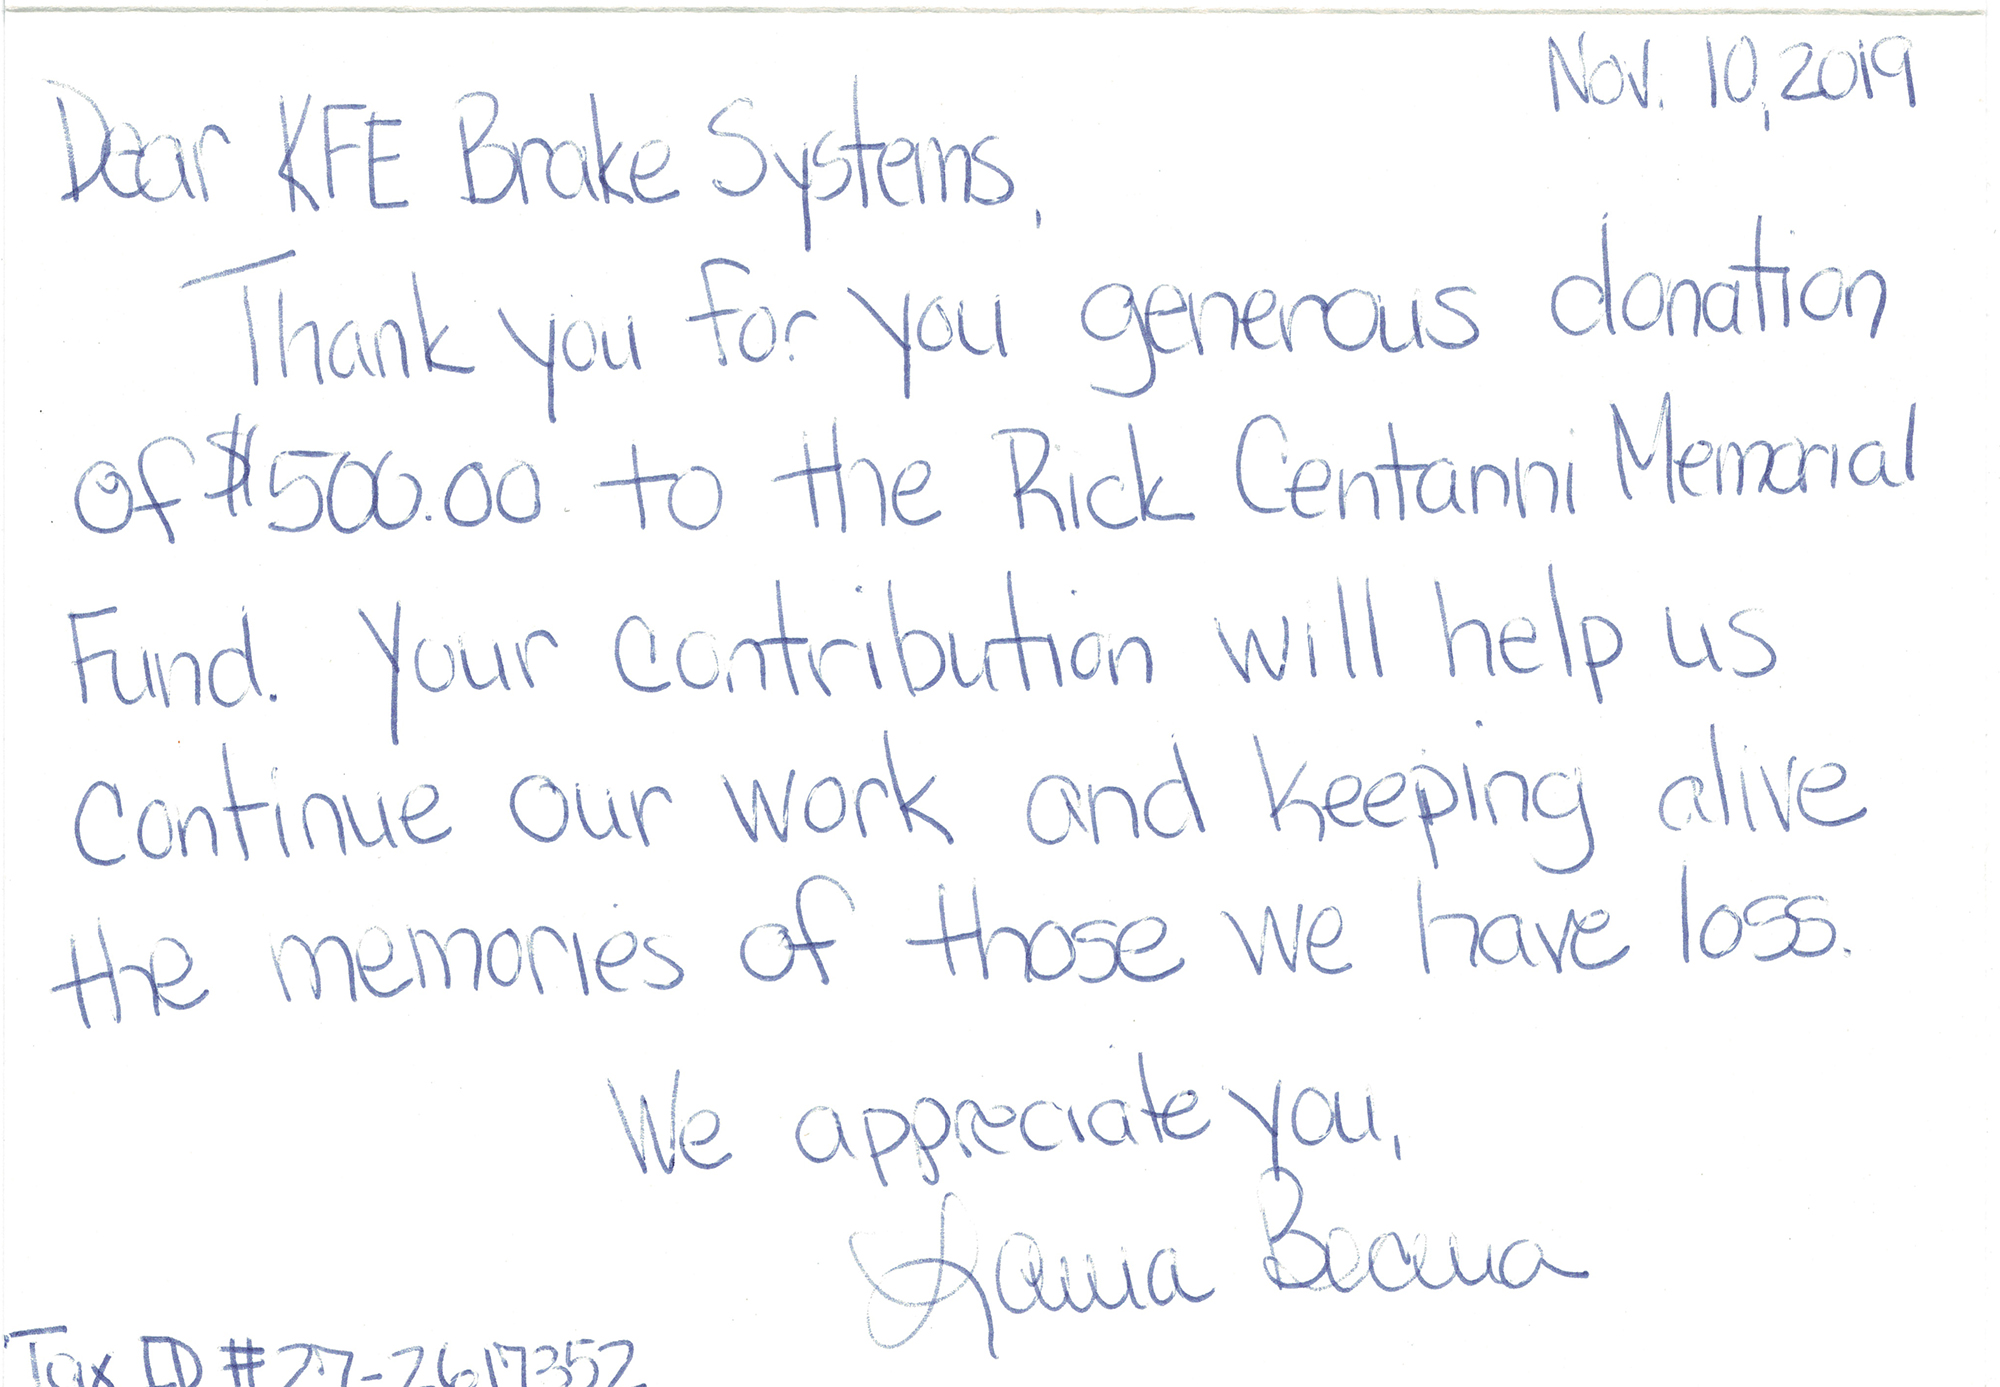 Nov. 10, 2019
Dear KFE Brake Systems,
Thank you for you generous donation
of $500.00 to the Rick Centanni Memorial
Fund. Your contribution will help us
continue our work and keeping alive
the memories of those we have loss.
We appreciate you,
Tax ID # 27-2617352